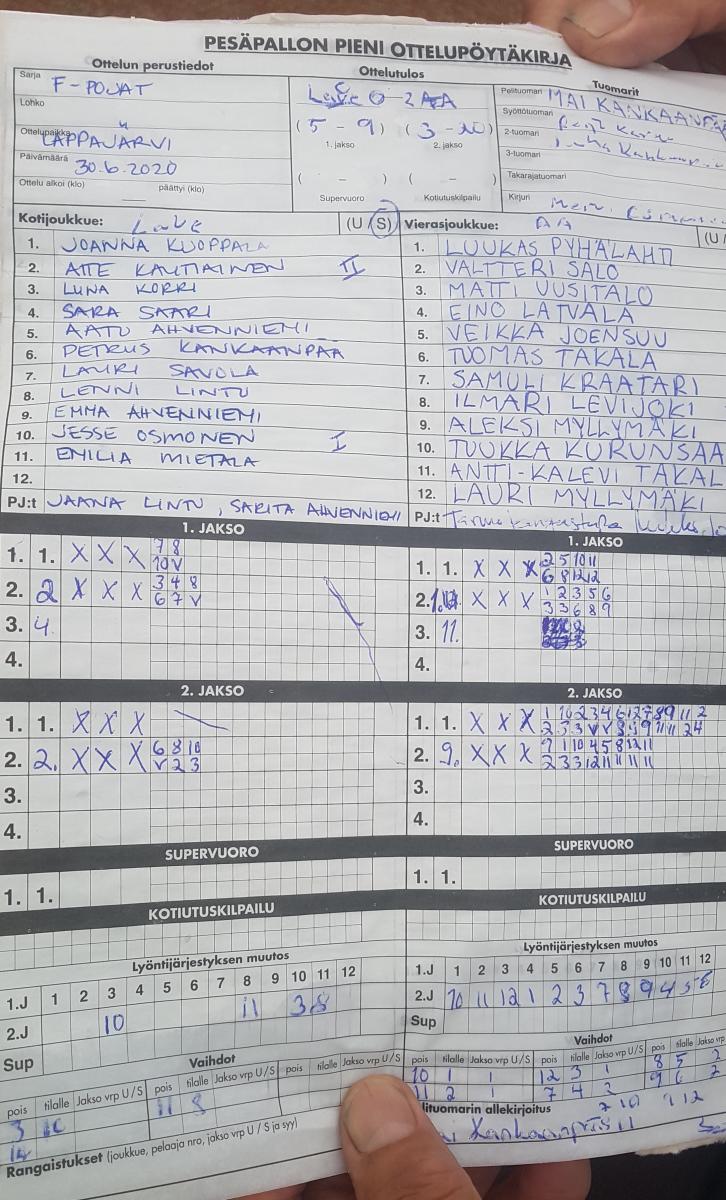 PESÄPALLON PIENI OTTELUPÖYTÄKIRJA
Ottelun perustiedot
Ottelutulos
Tuomarit
Sarja F-POJAT
Lohko
Ottelupaikka LAPPAJÄRVI
Päivämäärä 30.6.2020
Ottelu alkoi (klo) päättyi (klo)
0 - 2 AA
(5 - 9) (3 - 20)
1. jakso 2. jakso
( - ) ( - )
Supervuoro Kotiutuskilpailu
Pelituomari MAI KANKAANPÄ
Syöttötuomari
2-tuomari
3-tuomari
Takarajatuomari
Kirjuri
Kotijoukkue: LaVe (U / S)
1. JOANNA KUOPPALA
2. ATTE KAUTIAINEN II
3. LUNA KORRI
4. SARA SAARI
5. AATU AHVENNIEMI
6. PETRUS KANKAANPÄÄ
7. LAURI SAVOLA
8. LENNI LINTU
9. EMMA AHVENNIEMI
10. JESSE OSMONEN I
11. EMILIA MIETALA
12.
PJ:t JAANA LINTU, SARITA AHVENNIEMI
Vierasjoukkue: AA (U /
1. LUUKAS PYHÄLAHTI
2. VALTTERI SALO
3. MATTI UUSITALO
4. EINO LATVALA
5. VEIKKA JOENSUU
6. TUOMAS TAKALA
7. SAMULI KRAATARI
8. ILMARI LEVIJOKI
9. ALEKSI MYLLYMÄKI
10. TUUKKA KURUNSAA
11. ANTTI-KALEVI TAKAL
12. LAURI MYLLYMÄKI
PJ:t
1. JAKSO
1. 1. X X X 7 8
10 V
2. 2 X X X 3 4 8
6 7 V
3. 4.
4.
1. JAKSO
1. 1. X X X 2 5 10 11
6 8 12 12
2. X X X 1 2 3 5 6
3 3 6 8 9
3. 11.
4.
2. JAKSO
1. 1. X X X
2. 2. X X X 6 8 10
V 2 3
3.
4.
2. JAKSO
1. 1. X X X
2. 9. X X X 9 1 10 4 5 8 12 11
2 3 3 12 11 11 11 11
3.
4.
SUPERVUORO
1. 1.
SUPERVUORO
1. 1.
KOTIUTUSKILPAILU
KOTIUTUSKILPAILU
Lyöntijärjestyksen muutos
1.J 1 2 3 4 5 6 7 8 9 10 11 12
2.J 10 11 3 8
Sup
Lyöntijärjestyksen muutos
1.J 1 2 3 4 5 6 7 8 9 10 11 12
2.J 10 11 12 1 2 3 7 8 9 4 5 6
Sup
Vaihdot
pois tilalle Jakso vrp U/S pois tilalle Jakso vrp U/S pois tilalle Jakso vrp U/S
3 10 11 8
Vaihdot
pois tilalle Jakso vrp U/S pois tilalle Jakso vrp U/S pois tilalle Jakso vrp
10 1 1 12 3 1 8 5 2
11 2 1 7 4 2 9 6 2
Rangaistukset (joukkue, pelaaja nro, jakso vrp U / S ja syy)
lituomarin allekirjoitus